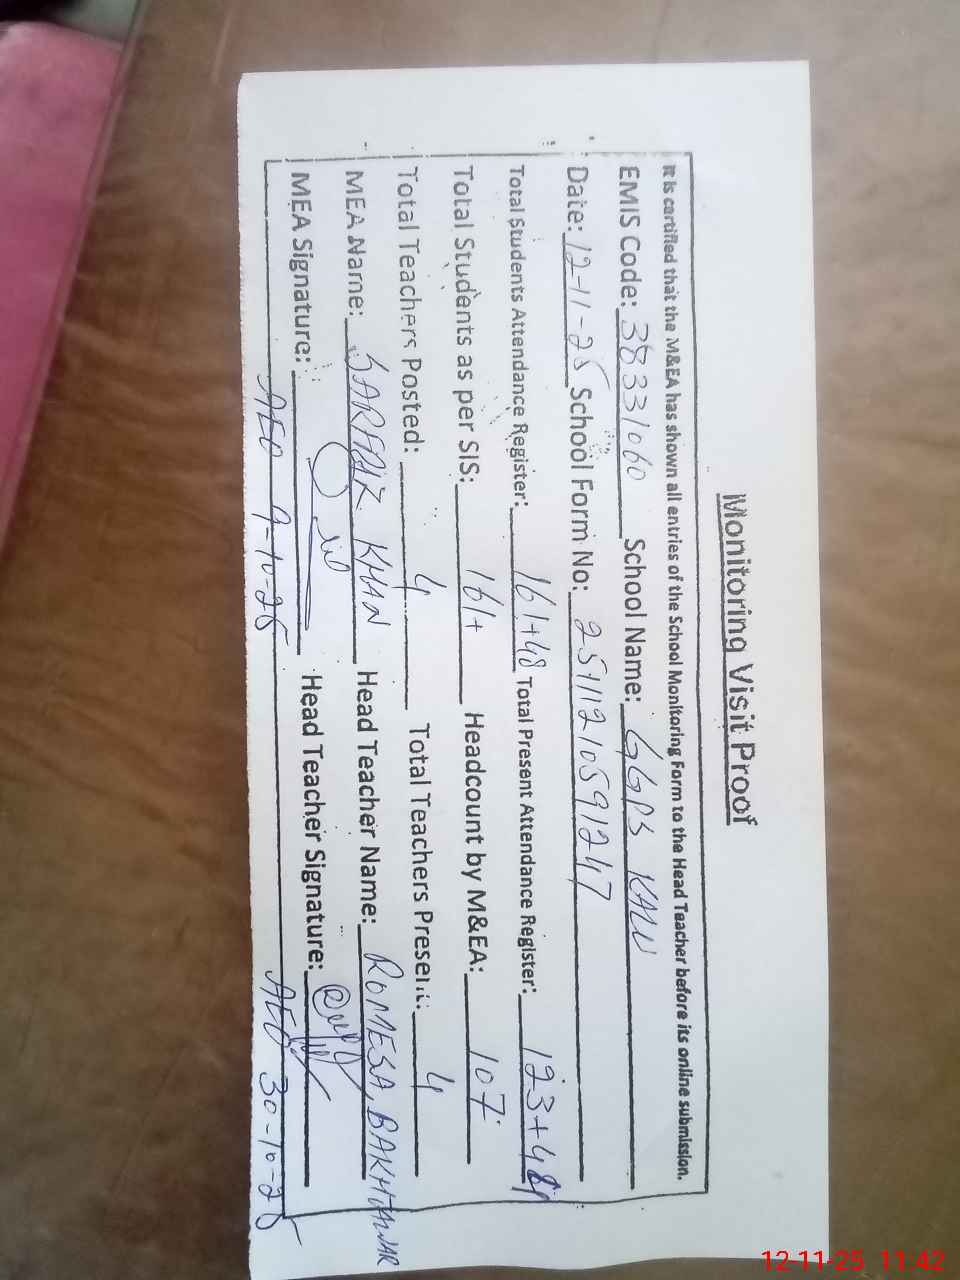 Monitoring Visit Proof
It is certified that the M&EA has shown all entries of the School Monitoring Form to the Head Teacher before its online submission.
EMIS Code: 38331060 School Name: GGPS KALU
Date: 12-11-25 School Form No: 25111210591247
Total Students Attendance Register: 161+48 Total Present Attendance Register: 123+48
Total Students as per SIS: 161+ Headcount by M&EA: 107
Total Teachers Posted: 4 Total Teachers Present: 4
MEA Name: SARFRAZ KHAN Head Teacher Name: ROMESA, BAKHTAWAR
MEA Signature: Head Teacher Signature:
AEO 9-10-25 AEO 30-10-25
12-11-25 11:42